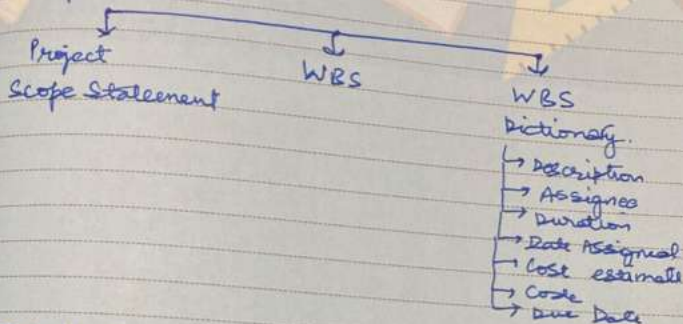 Project
Scope Stateement
WBS
WBS
Dictionary.
Description
Assignee
Duration
Date Assigned
Cost estimate
Code
Due Date